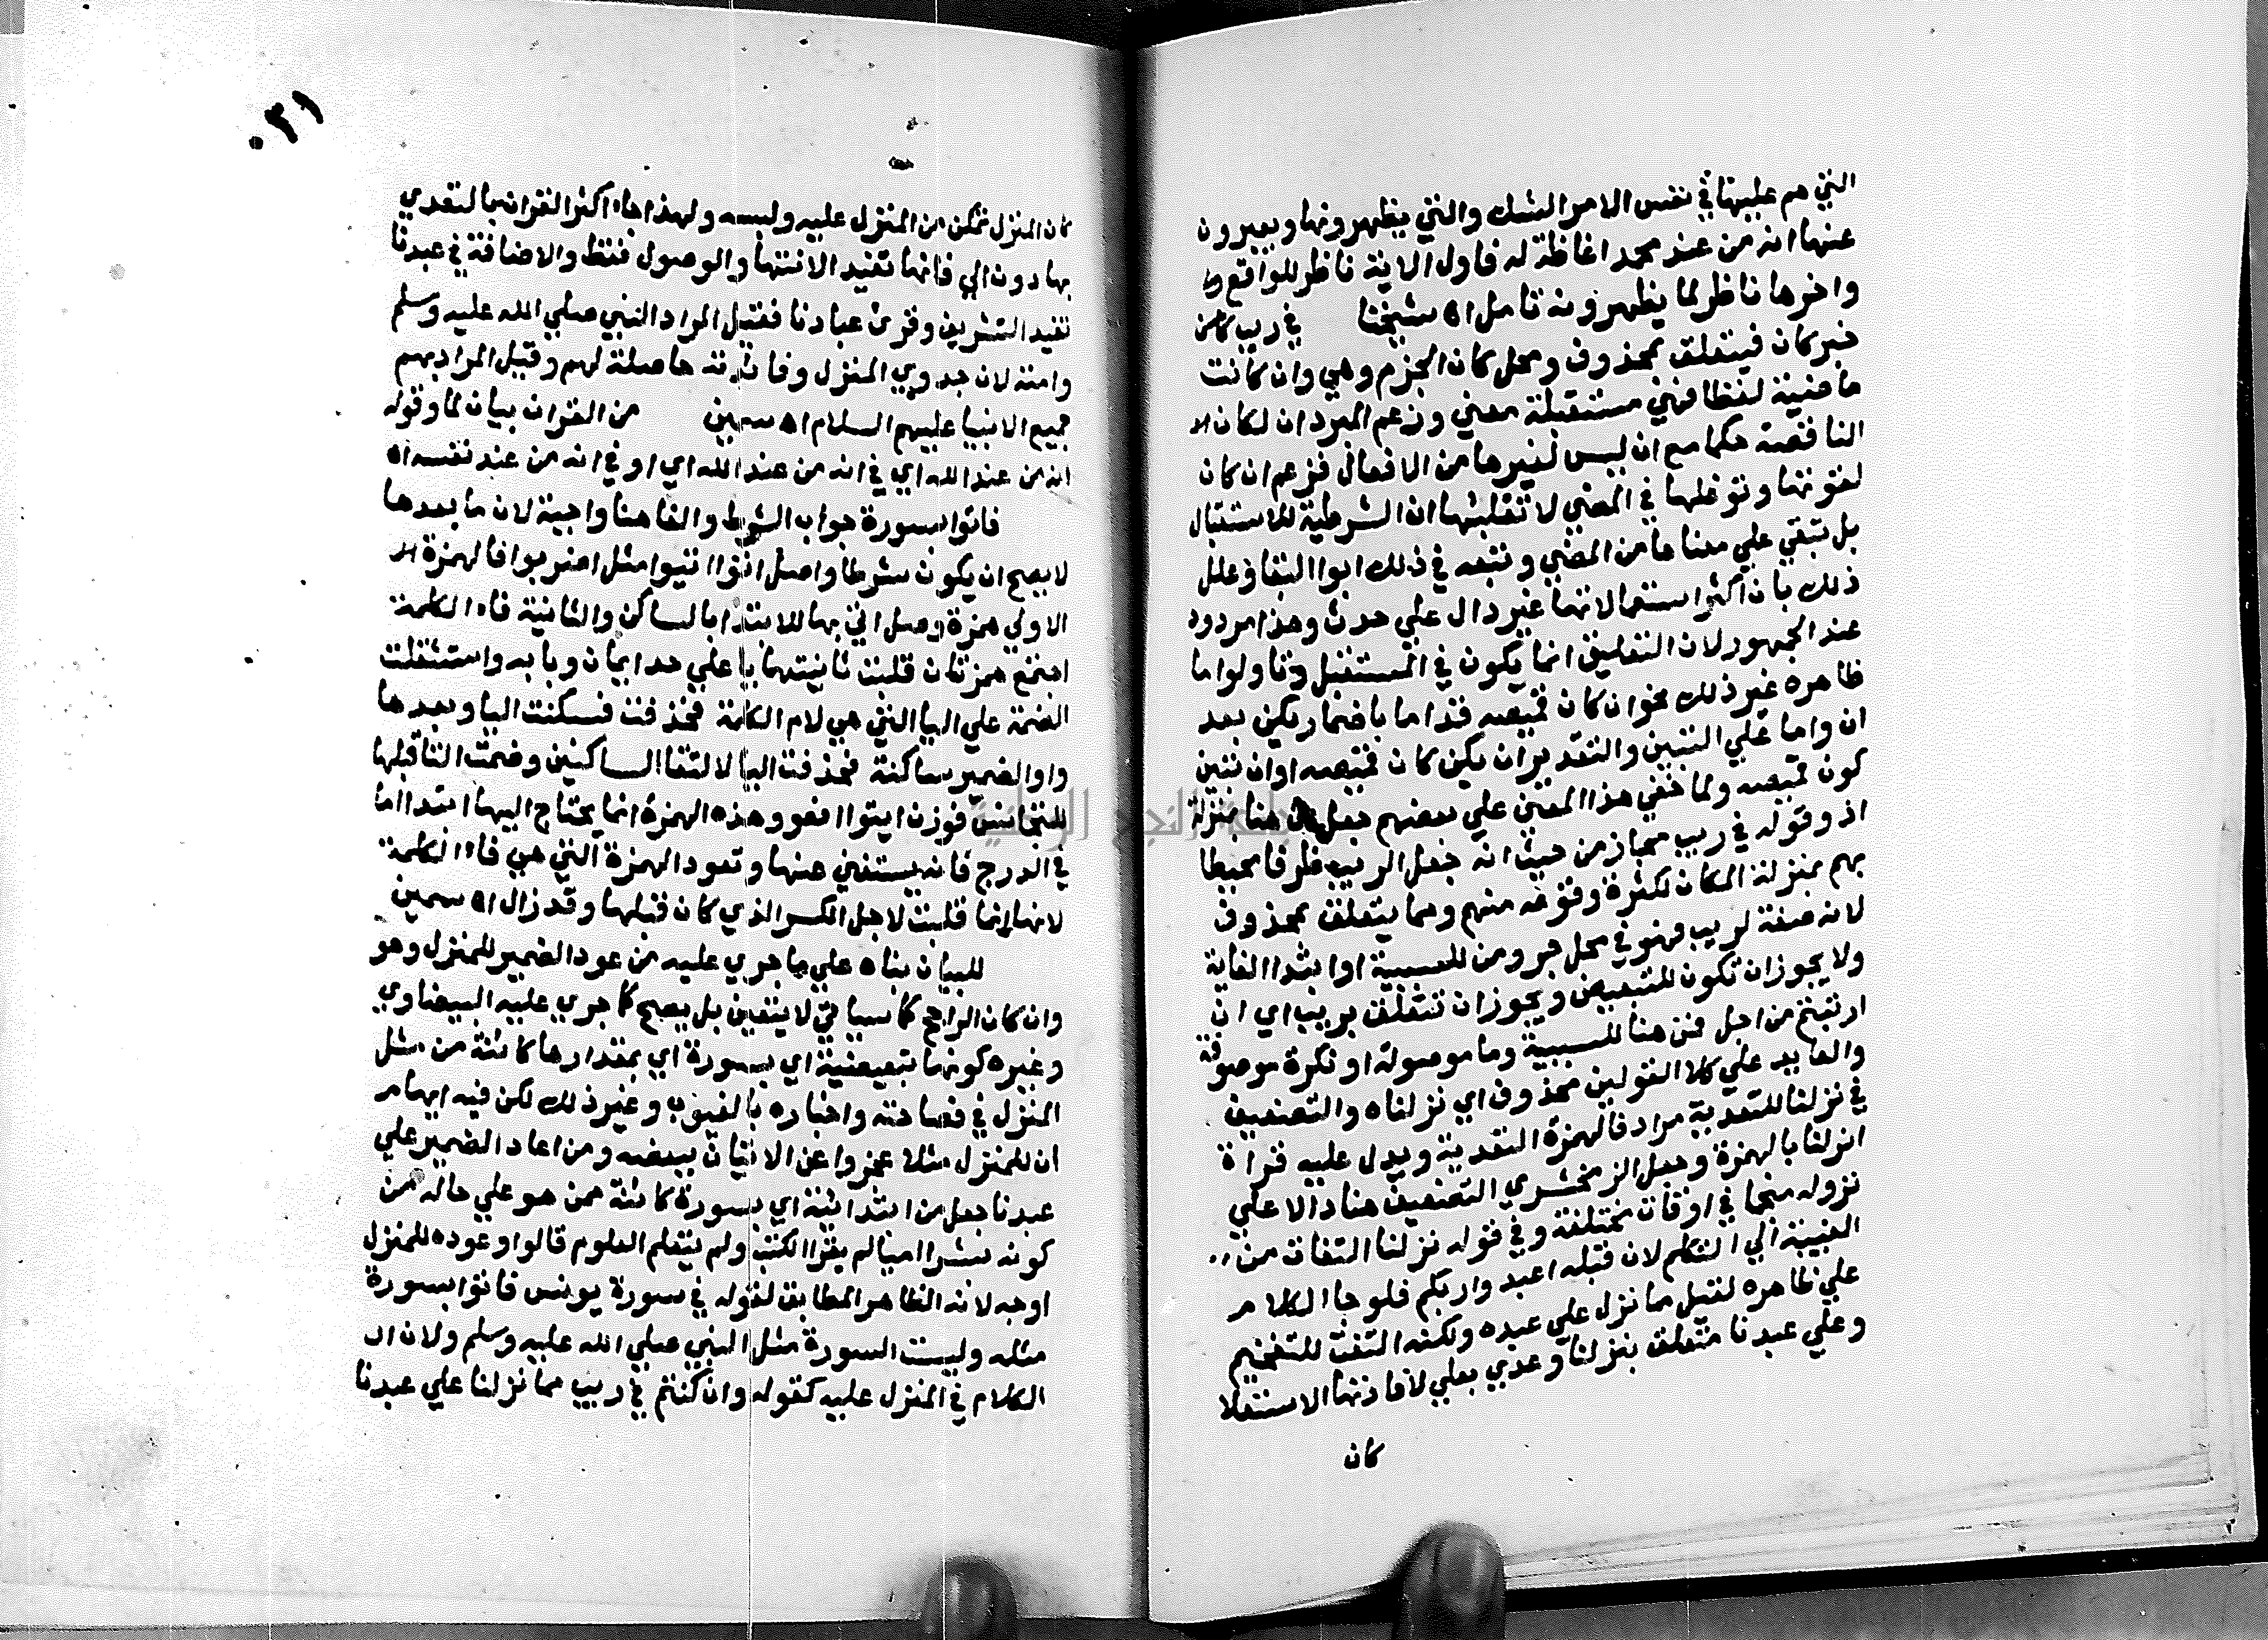 التي هم عليها في نفس الامر الشك والتي يظهرونها ويعبرون
عنها انه من عند محمد اغاظة له فاول الاية ناظر للواقع
واخرها ناظر لما يظهرونه تامل اه شيخنا في ريب كائن
خبر كان فيتعلق بمحذوف ومحل كان الجزم وهي وان كانت
ماضية لفظا فهي مستقبلة معني وزعم المبرد ان لكان الا
الناقصة حكما مع ان ليس لغيرها من الافعال فزعم ان كان
لقوتها وتوغلها في المضي لا تقلبها ان الشرطية للاستقبال
بل تبقي علي معناها من المضي وتبعه في ذلك ابوا البقا وعلل
ذلك بان اكثر استعمالاتها غير دال علي حدث وهذا مردود
عند الجمهور لان التعليق انما يكون في المستقبل وتاولوا ما
ظاهره غير ذلك نحو ان كان قميصه قد اما باضمار يكن بعد
ان واما علي التبين والتقدير ان يكن كان قميصه او ان تبين
كون قميصه ولما خفي هذا المعني علي بعضهم جعل ان هنا بمنزلة
اذ وقوله في ريب مجاز من حيث انه جعل الريب ظرفا محيطا
بهم بمنزلة المكان لكثرة وقوعه منهم ومما يتعلق بمحذوف
لانه صفة لريب فهو في محل جر ومن للسببية او ابتدا الغاية
ولا يجوز ان تكون للتبعيض ويجوز ان تتعلق بريب اي ان
ارتبتم من اجل فمن هنا للسببية وما موصولة او نكرة موصوفة
والعايد علي كلا القولين محذوف اي نزلناه والتضعيف
في نزلنا للتعدية مرادفا لهمزة التعدية ويدل عليه قراة
انزلنا بالهمزة وجعل الزمخشري التضعيف هنا دالا علي
نزوله منجما في اوقات مختلفة وفي قوله نزلنا التفات من
الغيبة الي التكلم لان قبله اعبدوا ربكم فلو جا الكلام
علي ظاهره لقيل مما نزل علي عبده ولكنه التفت للتفخيم
وعلي عبدنا متعلق بنزلنا وعدي بعلي لافادتها الاستعلا
كان
٠٣١
كان المنزل تمكن من المنزل عليه ولبسه ولهذا جاء اكثر القران بالتعدي
بها دون الي فانها تفيد الانتها والوصول فقط والاضافة في عبدنا
تفيد التشريف وقرئ عبادنا فقيل المراد النبي صلي الله عليه وسلم
وامته لان جدوي المنزل وفائدته حاصلة لهم وقيل المراد بهم
جميع الانبيا عليهم السلام اه سمين من القران بيان لما وقوله
انه من عند الله اي في انه من عند الله اي او في انه من عند نفسه اه
فاتوا بسورة جواب الشرط والفا هنا واجبة لان ما بعدها
لا يصح ان يكون شرطا واصل اتوا ائتيوا مثل اضربوا فالهمزة الا
الاولي همزة وصل اتي بها للابتدا بالساكن والثانية فاء الكلمة
اجتمع همزتان قلبت ثانيتهما يا علي حد ايمان وبابه واستثقلت
الضمة علي اليا التي هي لام الكلمة فحذفت فسكنت اليا وبعدها
واو الضمير ساكنة فحذفت اليا لالتقا الساكنين وضمت التا قبلها
للتجانس فوزن ايتوا افعو وهذه الهمزة انما يحتاج اليها ابتدا اما
في الدرج فانه يستغني عنها وتعود الهمزة التي هي فاء الكلمة
لانها انما قلبت لاجل الكسر الذي كان قبلها وقد زال اه سمين
للبيان بناه علي ما جري عليه من عود الضمير للمنزل وهو
وان كان الراجح كما سياتي لا يتعين بل يصح كما جري عليه البيضاوي
وغيره كونها تبعيضية اي بسورة اي بمقدارها كائنة من مثل
المنزل في فصاحته واخباره بالغيوب وغير ذلك لكن فيه ايهام
ان للمنزل مثلا عجزوا عن الاتيان ببعضه ومن اعاد الضمير علي
عبدنا جعل من ابتدائية اي بسورة كائنة ممن هو علي حاله من
كونه بشرا اميا لم يقرا الكتب ولم يتعلم العلوم قالوا وعوده للمنزل
اوجه لانه الظاهر المطابق لقوله في سورة يونس فاتوا بسورة
مثله وليست السورة مثل النبي صلي الله عليه وسلم ولان ال
الكلام في المنزل عليه كقوله وان كنتم في ريب مما نزلنا علي عبدنا
جامعة النجاح الوطنية